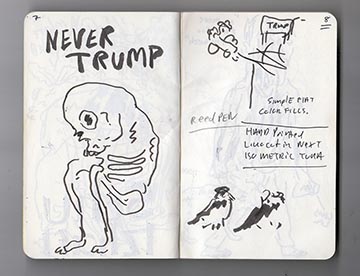 7
NEVER
TRUMP
8
TRUMP
SIMPLE FLAT
COLOR FILLS.
REED PEN
HAND PRINTED
LINOCUT IN NEXT
ISOMETRIC TUNA